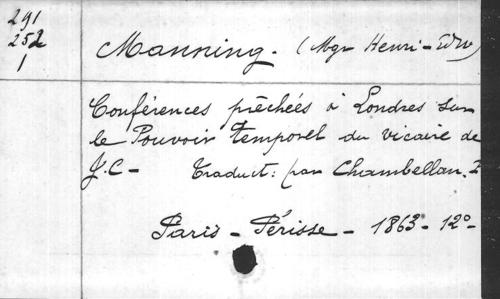 291
252
1
Manning. (Mgr Henri-Edw)
Conférences prêchées à Londres sur
le Pouvoir temporel du vicaire de
J.C- Traduct: par Chambellan.
Paris - Périsse - 1863 - 12º-